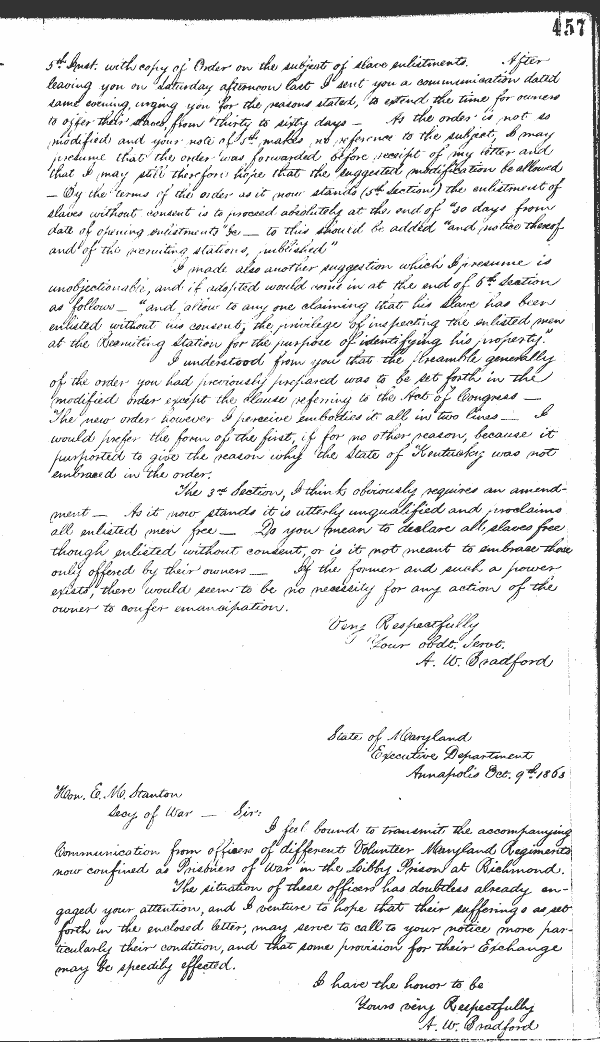 457
5th Inst. with copy of Order on the subject of slave enlistments. After
leaving you on Saturday afternoon last I sent you a communication dated
same evening, urging you for the reasons stated, to extend the time for owners
to offer their slaves, from "thirty to sixty days — As the order is not so
modified and your note of 5th makes no reference to the subject, I may
presume that the order was forwarded before receipt of my letter and
that I may still therefore hope that the suggested modification be allowed
— By the terms of the order as it now stands (5th Section) the enlistment of
slaves without consent is to proceed absolutely at the end of "30 days from
date of opening enlistments" &c — to this should be added "and notice thereof
and of the recruiting stations, published"
I made also another suggestion which I presume is
unobjectionable, and if adopted would come in at the end of 6th Section
as follows — "and allow to any one claiming that his slave has been
enlisted without his consent, the privilege of inspecting the enlisted men
at the Recruiting Station for the purpose of identifying his property."
I understood from you that the Preamble generally
of the order you had previously prepared was to be set forth in the
modified order except the clause referring to the Act of Congress —
The new order however I perceive embodies it all in two lines — I
would prefer the form of the first, if for no other reason, because it
purported to give the reason why the State of Kentucky was not
embraced in the order.
The 3rd Section, I think obviously requires an amend-
ment — As it now stands it is utterly unqualified and proclaims
all enlisted men free — Do you mean to declare all slaves free
though enlisted without consent, or is it not meant to embrace those
only offered by their owners — If the former and such a power
exists, there would seem to be no necessity for any action of the
owner to confer emancipation.
Very Respectfully
Your obdt. Servt.
A. W. Bradford
State of Maryland
Executive Department
Annapolis Oct. 9th 1863
Hon. E. M. Stanton
Secy of War — Sir:
I feel bound to transmit the accompanying
Communication from officers of different Volunteer Maryland Regiments
now confined as Prisoners of War in the Libby Prison at Richmond.
The situation of these officers has doubtless already en-
gaged your attention, and I venture to hope that their sufferings as set
forth in the enclosed letter, may serve to call to your notice more par-
ticularly their condition, and that some provision for their Exchange
may be speedily effected.
I have the honor to be
Yours very Respectfully
A. W. Bradford